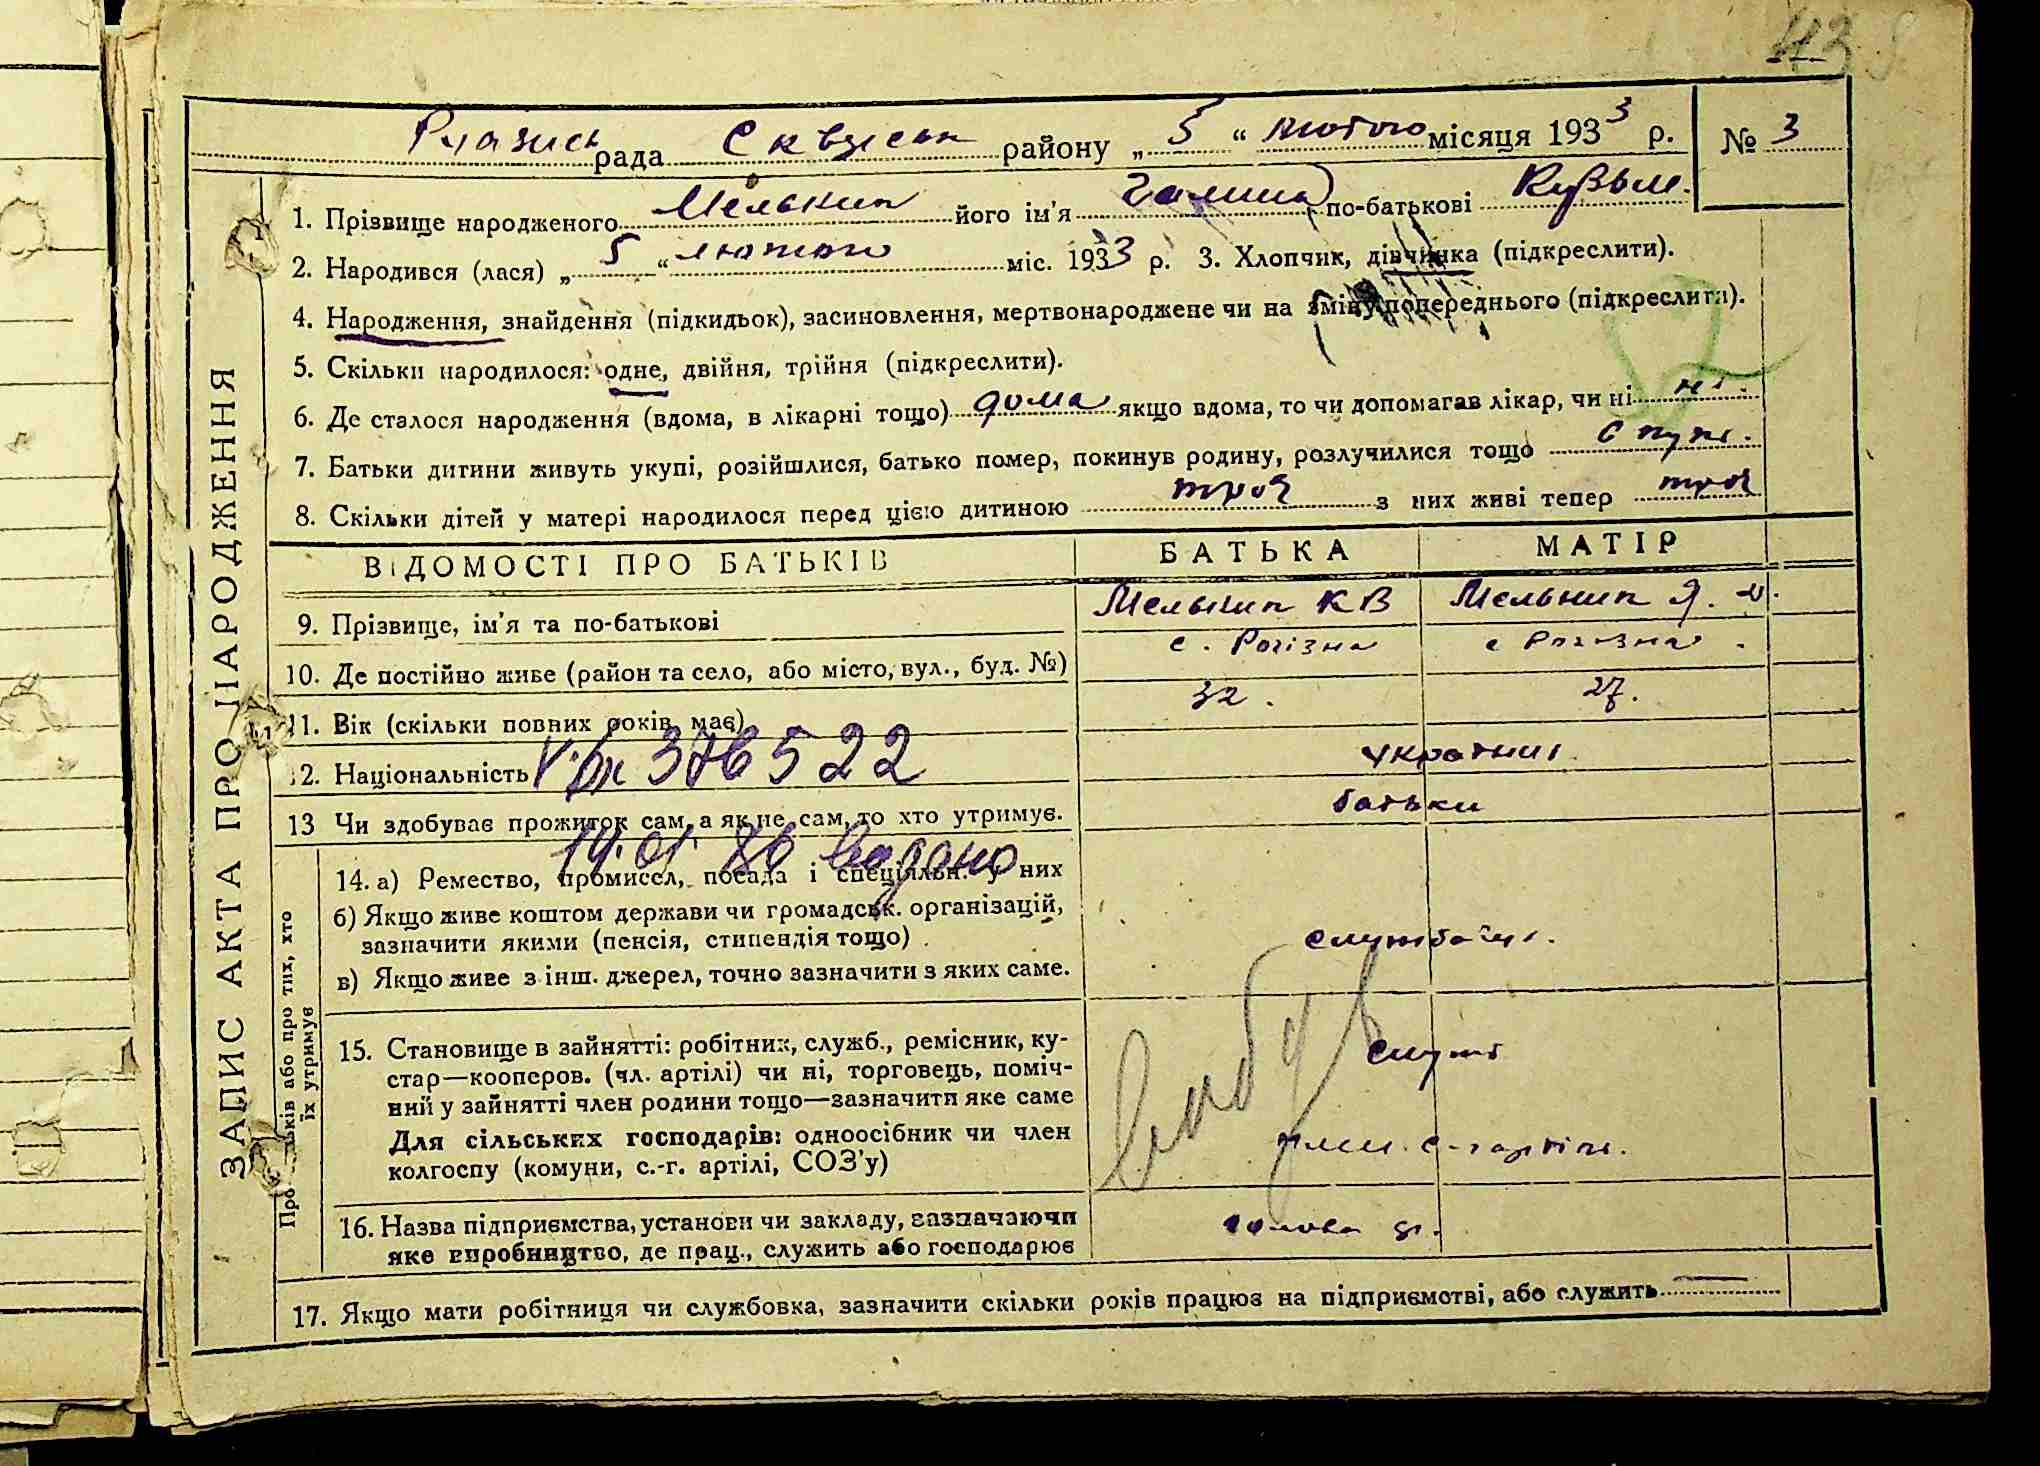 43
рада Сквирськ району „ 5 “ лютого місяця 1933 р. № 3
ЗАПИС АКТА ПРО НАРОДЖЕННЯ
1. Прізвище народженого Мельник його ім'я Галина по-батькові Кузьм.
2. Народився (лася) „ 5 “ лютого міс. 1933 р. 3. Хлопчик, дівчинка (підкреслити).
4. Народження, знайдення (підкидьок), засиновлення, мертвонароджене чи на зміну попереднього (підкреслити).
5. Скільки народилося: одне, двійня, трійня (підкреслити).
6. Де сталося народження (вдома, в лікарні тощо) дома якщо вдома, то чи допомагав лікар, чи ні ні.
7. Батьки дитини живуть укупі, розійшлися, батько помер, покинув родину, розлучилися тощо
8. Скільки дітей у матері народилося перед цією дитиною троє з них живі тепер троє
ВІДОМОСТІ ПРО БАТЬКІВ БАТЬКА МАТІР
9. Прізвище, ім'я та по-батькові Мельник К В Мельник Я.
10. Де постійно живе (район та село, або місто, вул., буд. №) с. Рогізна с Рогізна
11. Вік (скільки повних років має) 32. 27.
12. Національність українці
376522
13 Чи здобуває прожиток сам, а як не сам, то хто утримує. батьки
14.01.86 видано
Про батьків або про тих, хто їх утримує
14. а) Ремество, промисел, посада і спеціяльн. у них
б) Якщо живе коштом держави чи громадськ. організацій,
зазначити якими (пенсія, стипендія тощо) .
в) Якщо живе з інш. джерел, точно зазначити з яких саме.
15. Становище в зайнятті: робітник, служб., ремісник, ку-
стар—кооперов. (чл. артілі) чи ні, торговець, поміч-
ний у зайнятті член родини тощо—зазначити яке саме
Для сільських господарів: одноосібник чи член
колгоспу (комуни, с.-г. артілі, СОЗ'у)
16. Назва підприємства, установи чи закладу, зазначаючи голова
яке виробництво, де прац., служить або господарює
17. Якщо мати робітниця чи службовка, зазначити скільки років працює на підприємстві, або служить —